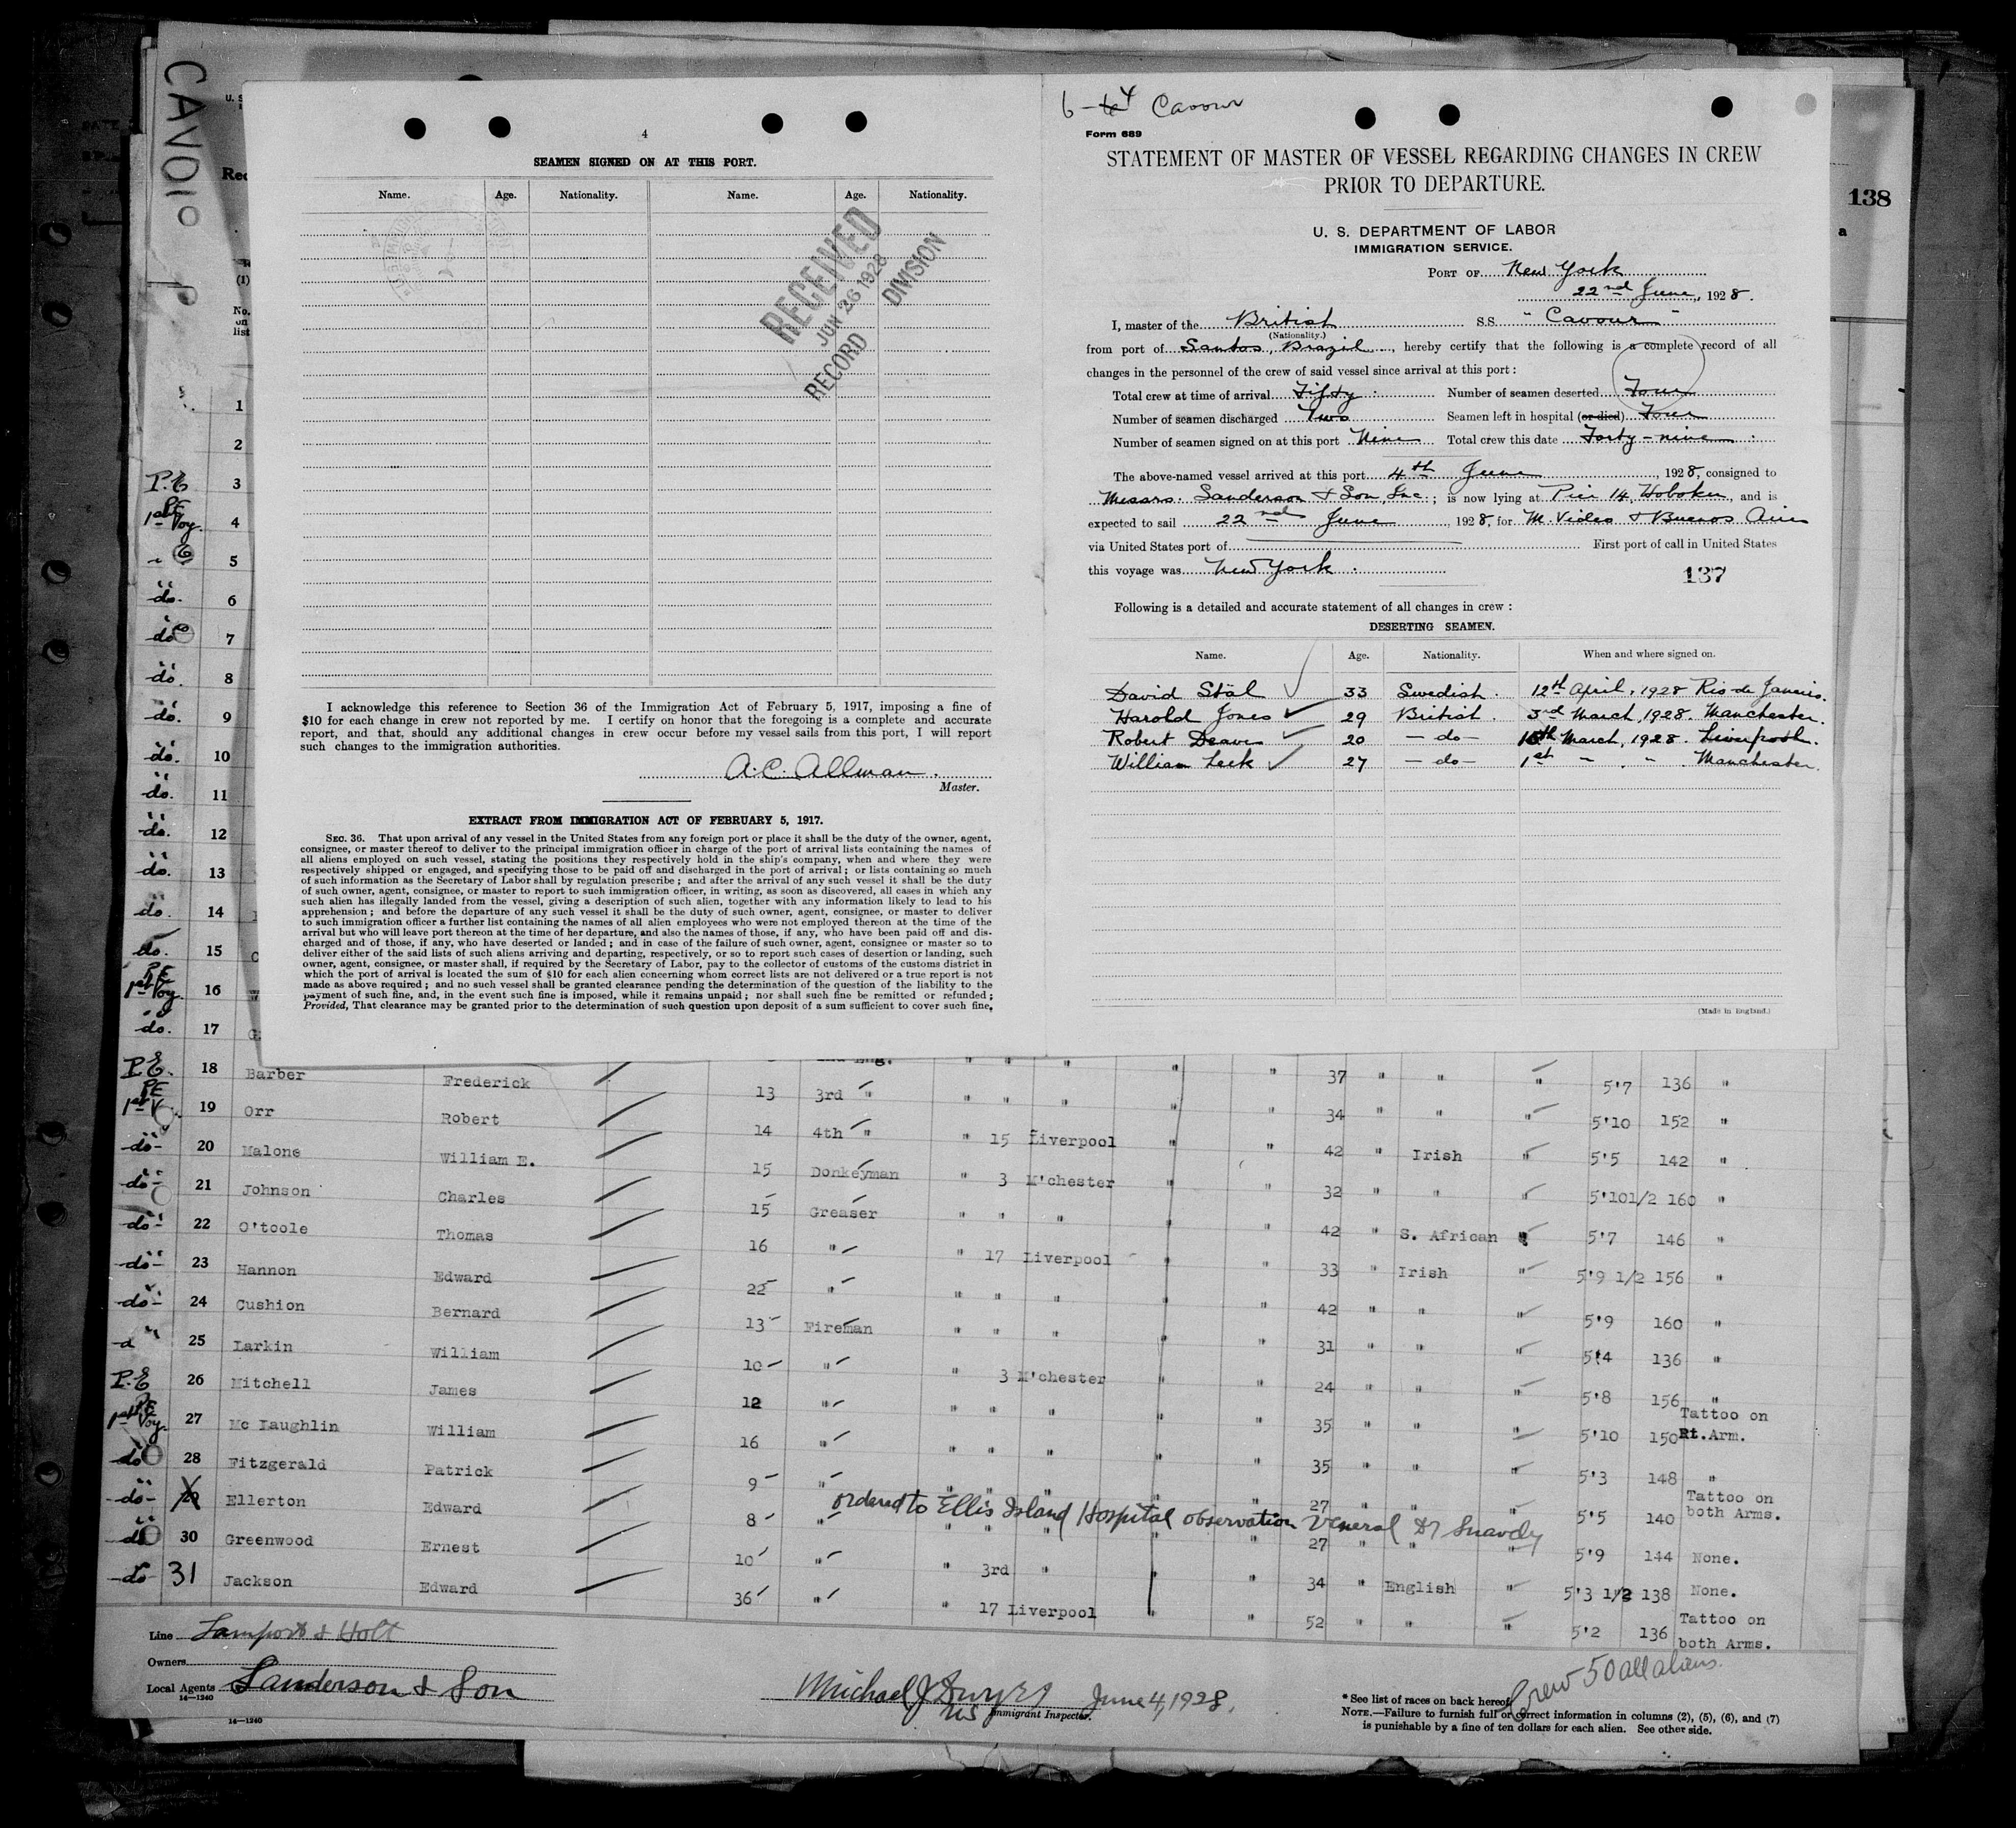 CAVOIP
P
4
SEAMEN SIGNED ON AT THIS PORT.
Name. Age. Nationality. Name. Age. Nationality.
RECEIVED
JUN 26 1928
RECORD DIVISION
I acknowledge this reference to Section 36 of the Immigration Act of February 5, 1917, imposing a fine of
$10 for each change in crew not reported by me. I certify on honor that the foregoing is a complete and accurate
report, and that, should any additional changes in crew occur before my vessel sails from this port, I will report
such changes to the immigration authorities.
A. C. Allman.
Master.
EXTRACT FROM IMMIGRATION ACT OF FEBRUARY 5, 1917.
SEC. 36. That upon arrival of any vessel in the United States from any foreign port or place it shall be the duty of the owner, agent,
consignee, or master thereof to deliver to the principal immigration officer in charge of the port of arrival lists containing the names of
all aliens employed on such vessel, stating the positions they respectively hold in the ship's company, when and where they were
respectively shipped or engaged, and specifying those to be paid off and discharged in the port of arrival; or lists containing so much
of such information as the Secretary of Labor shall by regulation prescribe; and after the arrival of any such vessel it shall be the duty
of such owner, agent, consignee, or master to report to such immigration officer, in writing, as soon as discovered, all cases in which any
such alien has illegally landed from the vessel, giving a description of such alien, together with any information likely to lead to his
apprehension; and before the departure of any such vessel it shall be the duty of such owner, agent, consignee, or master to deliver
to such immigration officer a further list containing the names of all alien employees who were not employed thereon at the time of the
arrival but who will leave port thereon at the time of her departure, and also the names of those, if any, who have been paid off and dis-
charged and of those, if any, who have deserted or landed; and in case of the failure of such owner, agent, consignee or master so to
deliver either of the said lists of such aliens arriving and departing, respectively, or so to report such cases of desertion or landing, such
owner, agent, consignee, or master shall, if required by the Secretary of Labor, pay to the collector of customs of the customs district in
which the port of arrival is located the sum of $10 for each alien concerning whom correct lists are not delivered or a true report is not
made as above required; and no such vessel shall be granted clearance pending the determination of the question of the liability to the
payment of such fine, and, in the event such fine is imposed, while it remains unpaid; nor shall such fine be remitted or refunded;
Provided, That clearance may be granted prior to the determination of such question upon deposit of a sum sufficient to cover such fine,
Cavour
Form 689
STATEMENT OF MASTER OF VESSEL REGARDING CHANGES IN CREW
PRIOR TO DEPARTURE.
U. S. DEPARTMENT OF LABOR
IMMIGRATION SERVICE.
PORT OF New York
22nd June, 1928.
I, master of the British S.S. "Cavour"
(Nationality.)
from port of Santos, Brazil, hereby certify that the following is a complete record of all
changes in the personnel of the crew of said vessel since arrival at this port:
Total crew at time of arrival Fifty. Number of seamen deserted Four
Number of seamen discharged Two Seamen left in hospital (or died) Four
Number of seamen signed on at this port Nine Total crew this date Forty-nine.
The above-named vessel arrived at this port 4th June, 1928, consigned to
Messrs. Sanderson & Son, Inc.; is now lying at Pier 14, Hoboken, and is
expected to sail 22nd June, 1928, for M. Video & Buenos Aires
via United States port of First port of call in United States
this voyage was New York.
137
Following is a detailed and accurate statement of all changes in crew:
DESERTING SEAMEN.
Name. Age. Nationality. When and where signed on.
David Stäl 33 Swedish. 12th April, 1928 Rio de Janeiro.
Harold Jones 29 British. 3rd March, 1928. Manchester.
Robert Deaves 20 - do - March, 1928. Liverpool.
William Leek 27 - do - 1st " " Manchester.
(Made in England.)
138
a
U. S
Rec
(1)
No.
on
list
1
2
P.E 3
PE 1st Voy. 4
5
do. 6
do 7
do. 8
do. 9
do. 10
do. 11
do. 12
do. 13
do. 14
do. 15
PE 1st Voy. 16
do. 17
2nd Eng. " " " " "
P.E. 18 Barber Frederick 13 3rd " " " " " " 37 " " " 5'7 136 "
PE 1st V. 19 Orr Robert 14 4th " " 15 Liverpool " " 34 " " " 5'10 152 "
do- 20 Malone William E. 15 Donkeyman " 3 M'chester " " 42 " Irish " 5'5 142 "
do- 21 Johnson Charles 15 Greaser " " " " " 32 " " " 5'10 1/2 160 "
do- 22 O'toole Thomas 16 " " 17 Liverpool " " 42 " S. African " 5'7 146 "
do- 23 Hannon Edward 22 " " " " " " 33 " Irish " 5'9 1/2 156 "
do- 24 Cushion Bernard 13 Fireman " " " " " 42 " " " 5'9 160 "
25 Larkin William 10 " " 3 M'chester " " 31 " " " 5'4 136 "
P.E 26 Mitchell James 12 " " " " " " 24 " " " 5'8 156 "
PE 1st Voy. 27 Mc Laughlin William 16 " " " " " " 35 " " " 5'10 150 Tattoo on Rt. Arm.
do 28 Fitzgerald Patrick 9 " " " " " " 35 " " " 5'3 148 "
do- 29 Ellerton Edward 8 " " " " " " 27 " " " 5'5 140 Tattoo on both Arms.
ordered to Ellis Island Hospital observation Veneral Dr
do 30 Greenwood Ernest 10 " " 3rd " " 27 " " " 5'9 144 None.
do 31 Jackson Edward 36 " " 17 Liverpool " 34 " English " 5'3 1/2 138 None.
" 52 " " " 5'2 136 Tattoo on both Arms.
Line Lamport & Holt
Owners
Local Agents Sanderson & Son
14-1240
14-1240
Michael J Dwyer June 4, 1928.
US Immigrant Inspector.
Crew 50 all aliens.
* See list of races on back hereof.
NOTE.—Failure to furnish full or correct information in columns (2), (5), (6), and (7)
is punishable by a fine of ten dollars for each alien. See other side.